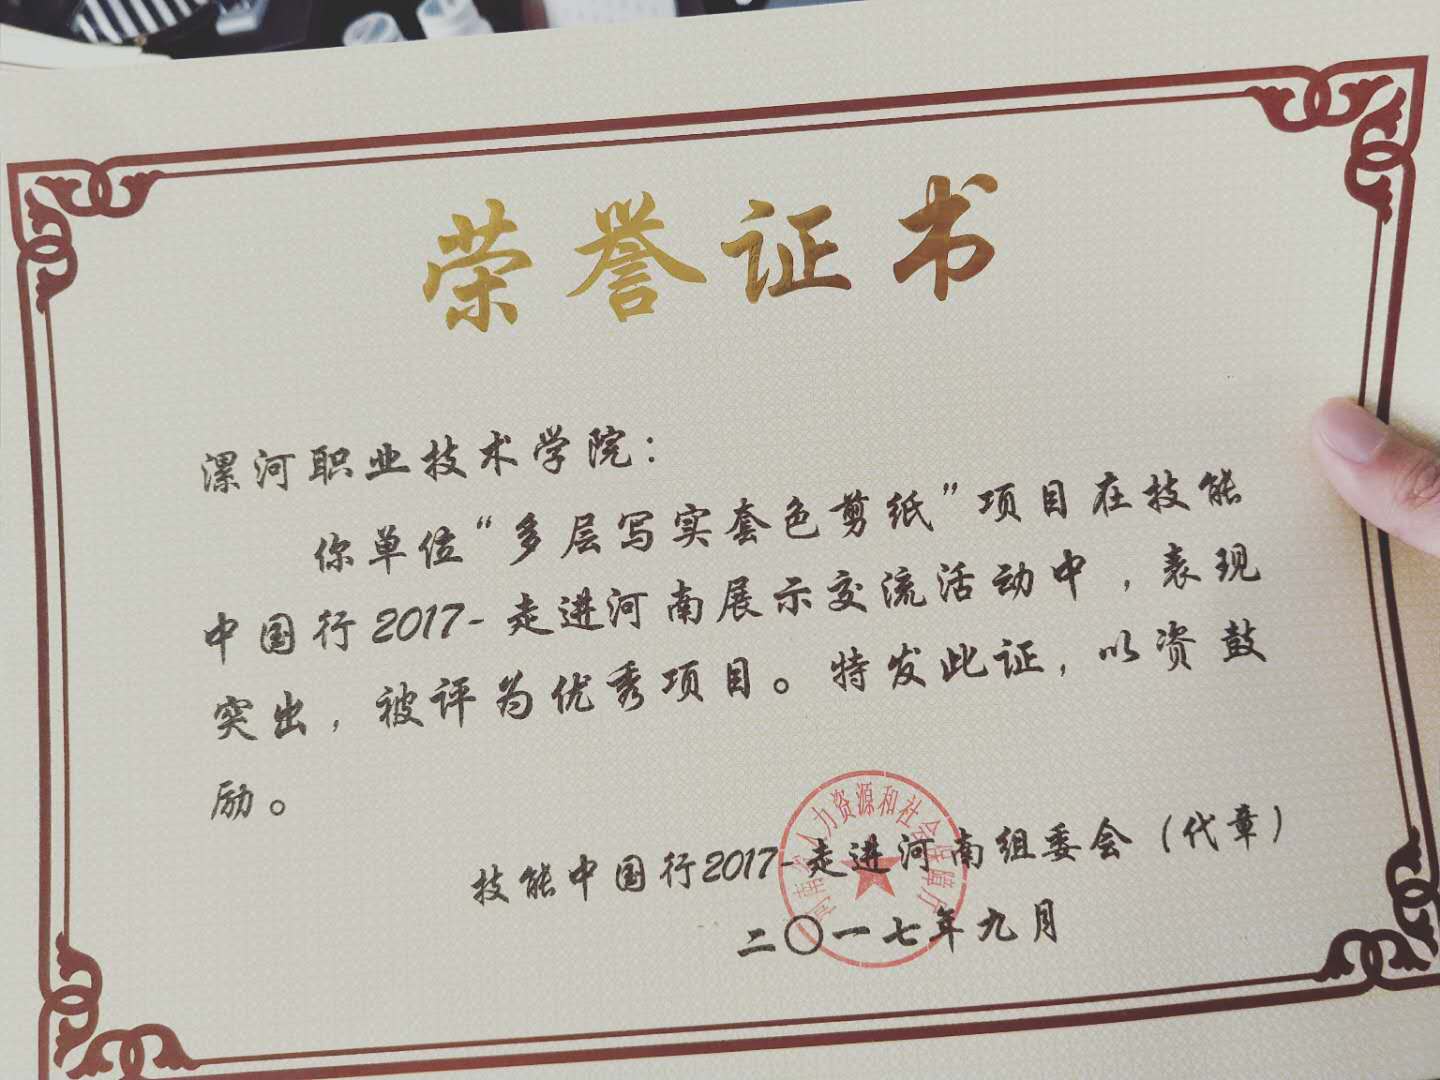 荣誉证书
漯河职业技术学院：
你单位“多层写实套色剪纸”项目在技能
中国行2017-走进河南展示交流活动中，表现
突出，被评为优秀项目。特发此证，以资鼓
励。
河南省人力资源和社会保障厅
技能中国行2017-走进河南组委会（代章）
二〇一七年九月